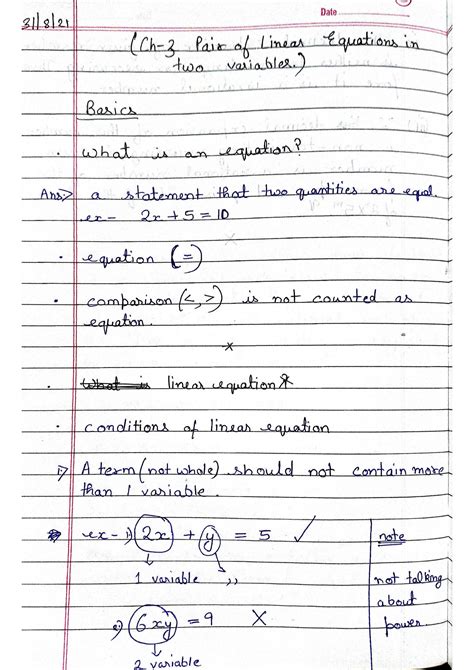 31/8/21
Date
(Ch-3 Pair of Linear Equations in
two variables.)
Basics
· What is an equation?
Ans;> a statement that two quantities are equal.
ex- 2x + 5 = 10
x
· equation (=)
· comparison (<, >) is not counted as
equation.
x
· What is linear equation
· conditions of linear equation
i> A term (not whole) should not contain more
than 1 variable.
ex- 1) 2x + y = 5 ✓
note
1 variable ,,
not talking
about
power.
2) 6xy = 9 X
2 variable